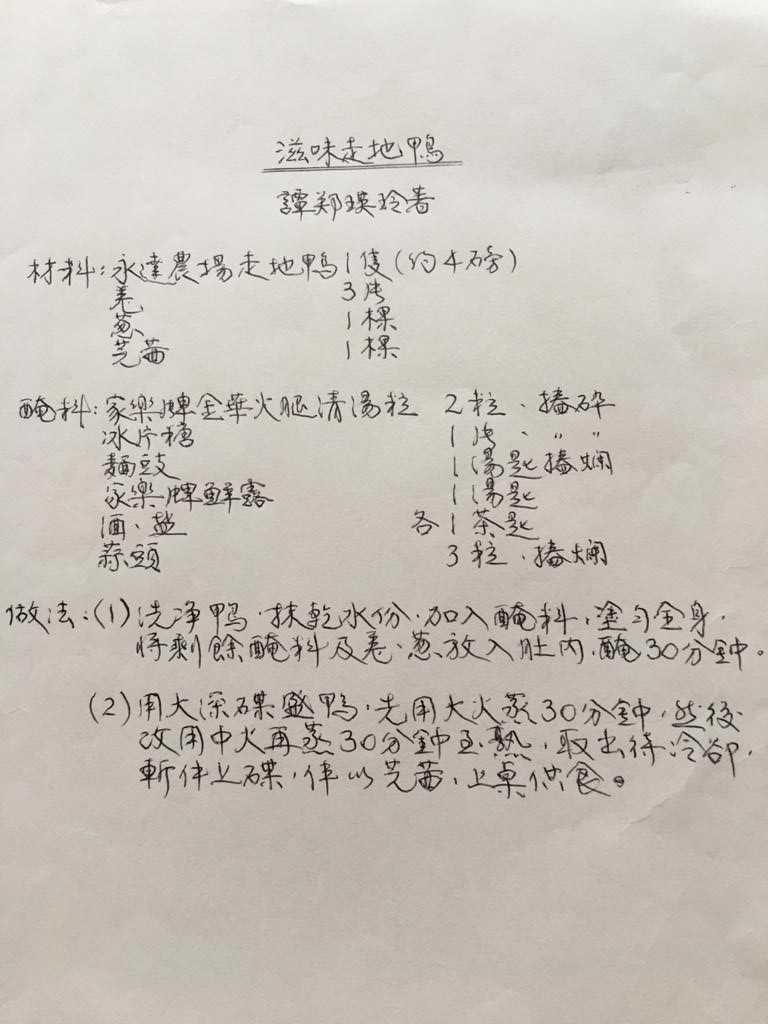 滋味走地鴨
譚鄭瑛玲書
材料:永達農場走地鴨1隻(約4磅)
羗 3片
葱 1棵
芫茜 1棵
醃料:家樂牌金華火腿清湯粒 2粒、摏碎
冰片糖 1片、〃 〃
麵豉 1湯匙摏爛
家樂牌鮮露 1湯匙
酒、盐 各1茶匙
蒜頭 3粒、摏爛
做法:(1)洗净鴨,抹乾水份,加入醃料,塗匀全身,
將剩餘醃料及羗、葱放入肚内,醃30分鈡。
(2)用大深碟盛鴨,先用大火蒸30分鈡,然後
改用中火再蒸30分鈡至熟,取出待冷卻,
斬件上碟,伴以芫茜,上桌供食。